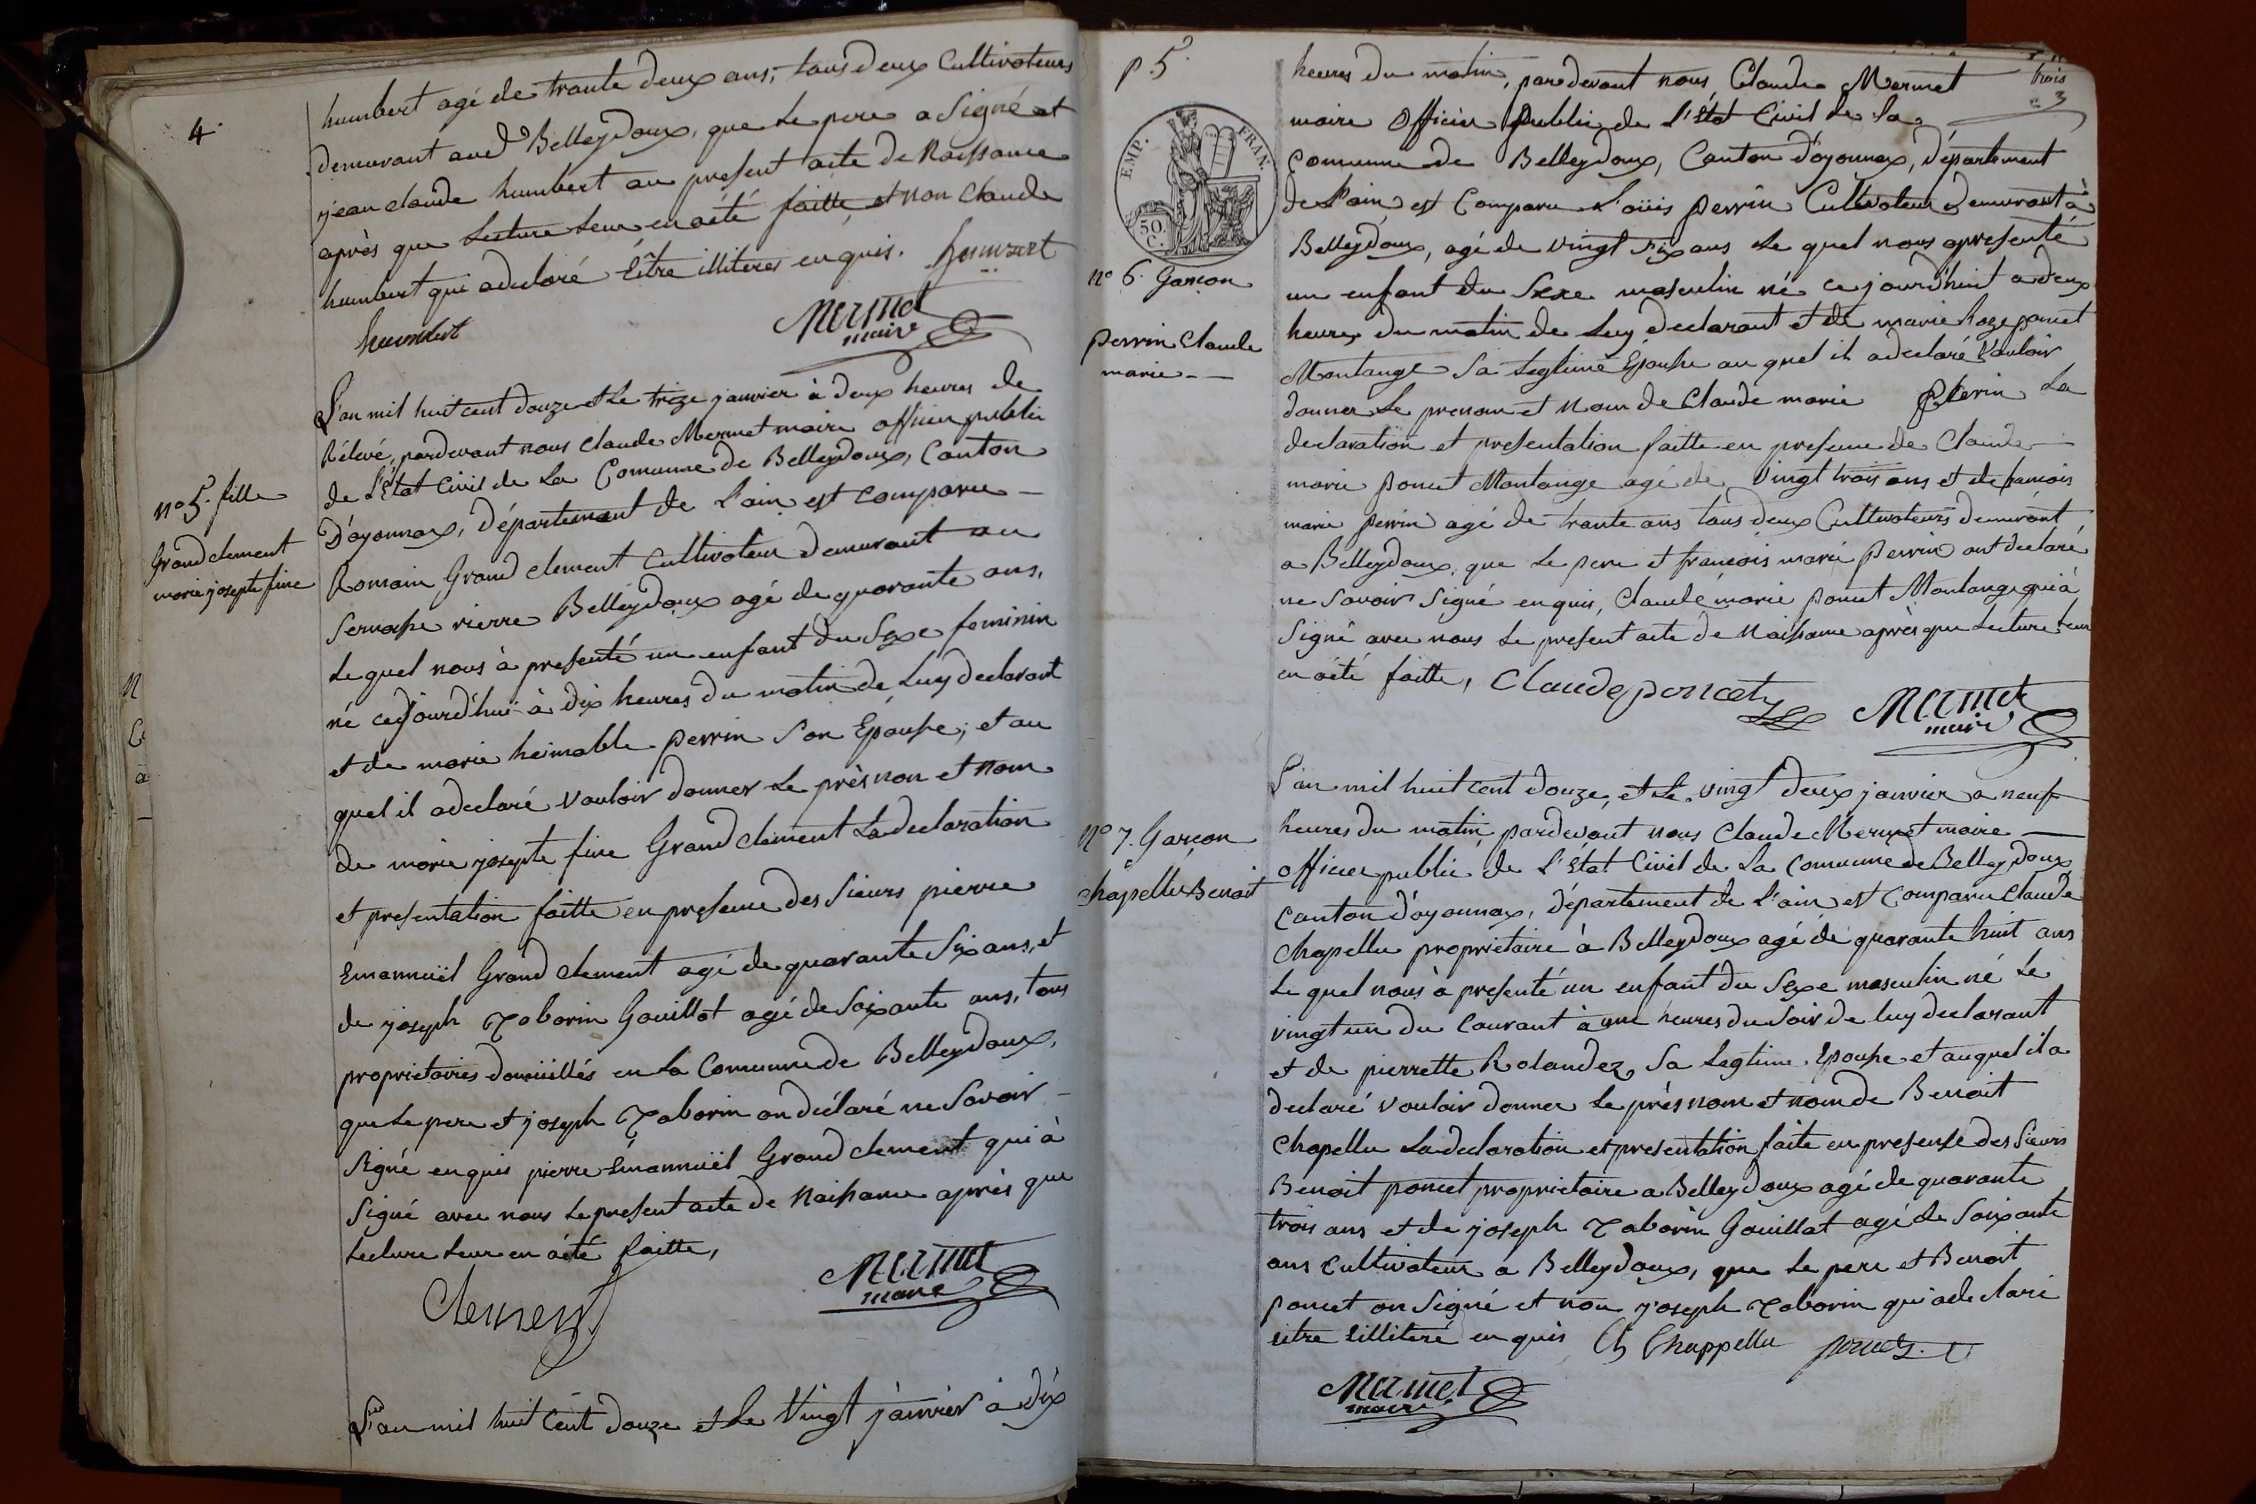 4.
humbert agé de trante deux ans, tous deux Cultivateurs
demeurant aud Belleydoux, que le pere a Signé et
jean claude humbert au present acte de Naissance
après que Lecture leur en aété faitte, et non Claude
humbert qui adeclaré Être illiteres enquis. humbert
humbert
Mermet
maire
L'an mil huit cent douze et Le treze janvier à deux heures de
Rélévé, pardevant nous Claude Mermet maire officier public
de L'État Civil de La Comune de Belleydoux, Canton
D'oyonnax, Département de L'ain est comparu —
Romain Grand clement Cultivateur demeurant au
rierre Belleydoux agé de quarante ans,
Le quel nous à presenté un enfant du Sexe feminin
né cejourd'hui à dix heures du matin de Luy declarant
et de marie heimable perrin Son Epouse, et au
quel il adeclaré Vouloir donner Le prèsnon et nom
de marie josepte fine Grand clement La declaration
et presentation faitte en presence des Sieurs pierre
Emannuël Grand clement agé de quarante Six ans, et
de joseph Taborin Gouillot agé de Soixante ans, tous
proprietaires domiciliés en La Comune de Belleydoux,
que Le pere et joseph Taborin on déclaré ne Savoir —
Signé enquis pierre Emannuël Grand clement qui à
Signé avec nous Le present acte de Naissance après que
Lecture Leur en aété faitte,
n° 5. fille
Grand clement
marie josepte fine
N
Clement
Mermet
maire
L'an mil huit Cent douze et Le Vingt janvier à dix
p 5.
trois
3
heures du matin, pardevant nous Claude Mermet
maire Officier Public de L'État Civil de La
Comune de Belleydoux, Canton d'oyonnax, département
de L'ain est Comparu L'oüis perrin Cultivateur demeurant à
Belleydoux, agé de vingt Six ans Le quel nous apresenté
un enfant du Sexe masculin né ce jourd'huit a deux
heures du matin de Luy declarant et de marie Roze poncet
Montange Sa Legtime Epouse au quel il adeclaré Vouloir
donner Le prenom et Nom de Claude marie Perrin La
declaration et presentation faitte en presence de Claude
marie poncet Montange agé de Vingt trois ans et de francois
marie perrin agé de trante ans tous deux Cultivateurs demeurant
a Belleydoux, que Le pere et francois marie perrin ont declaré
ne Savoir Signé enquis, Claude marie poncet Montange qui à
Signé avec nous Le present acte de Naissance après que Lecture Leur
en aété faitte,
EMP. FRAN.
50.
C.
n° 6. Garcon
perrin Claude
marie
Claude poncet
Mermet
maire
L'an mil huit Cent douze, et Le vingt deux janvier a neuf
heures du matin, pardevant nous Claude Mermet maire —
officier public de L'État Civil de La Comune de Belleydoux
Canton d'oyonnax, département de L'ain est Comparu Claude
Chapellu proprietaire à Belleydoux agé de quarante huit ans
Le quel nous à presenté un enfant du Sexe masculin né Le
vingt un du Courant à une heures du Soir de luy declarant
et de pierrette Rolandez, Sa Legtime Epouse et auquel il a
declaré vouloir donner Le présnom et nom de Benoit
Chapellu La declaration et presentation faite en presense des Sieurs
Benoit poncet proprietaire a Belleydoux agé de quarante
trois ans et de joseph Taborin Gouillat agé de Soixante
ans Cultivateur a Belleydoux, que Le pere et Benoit
poncet on Signé et non joseph Taborin qui adeclaré
eitre illiteré enquis
n° 7. Garcon
chapellu Benoit
Chappellu poncet
Mermet
maire